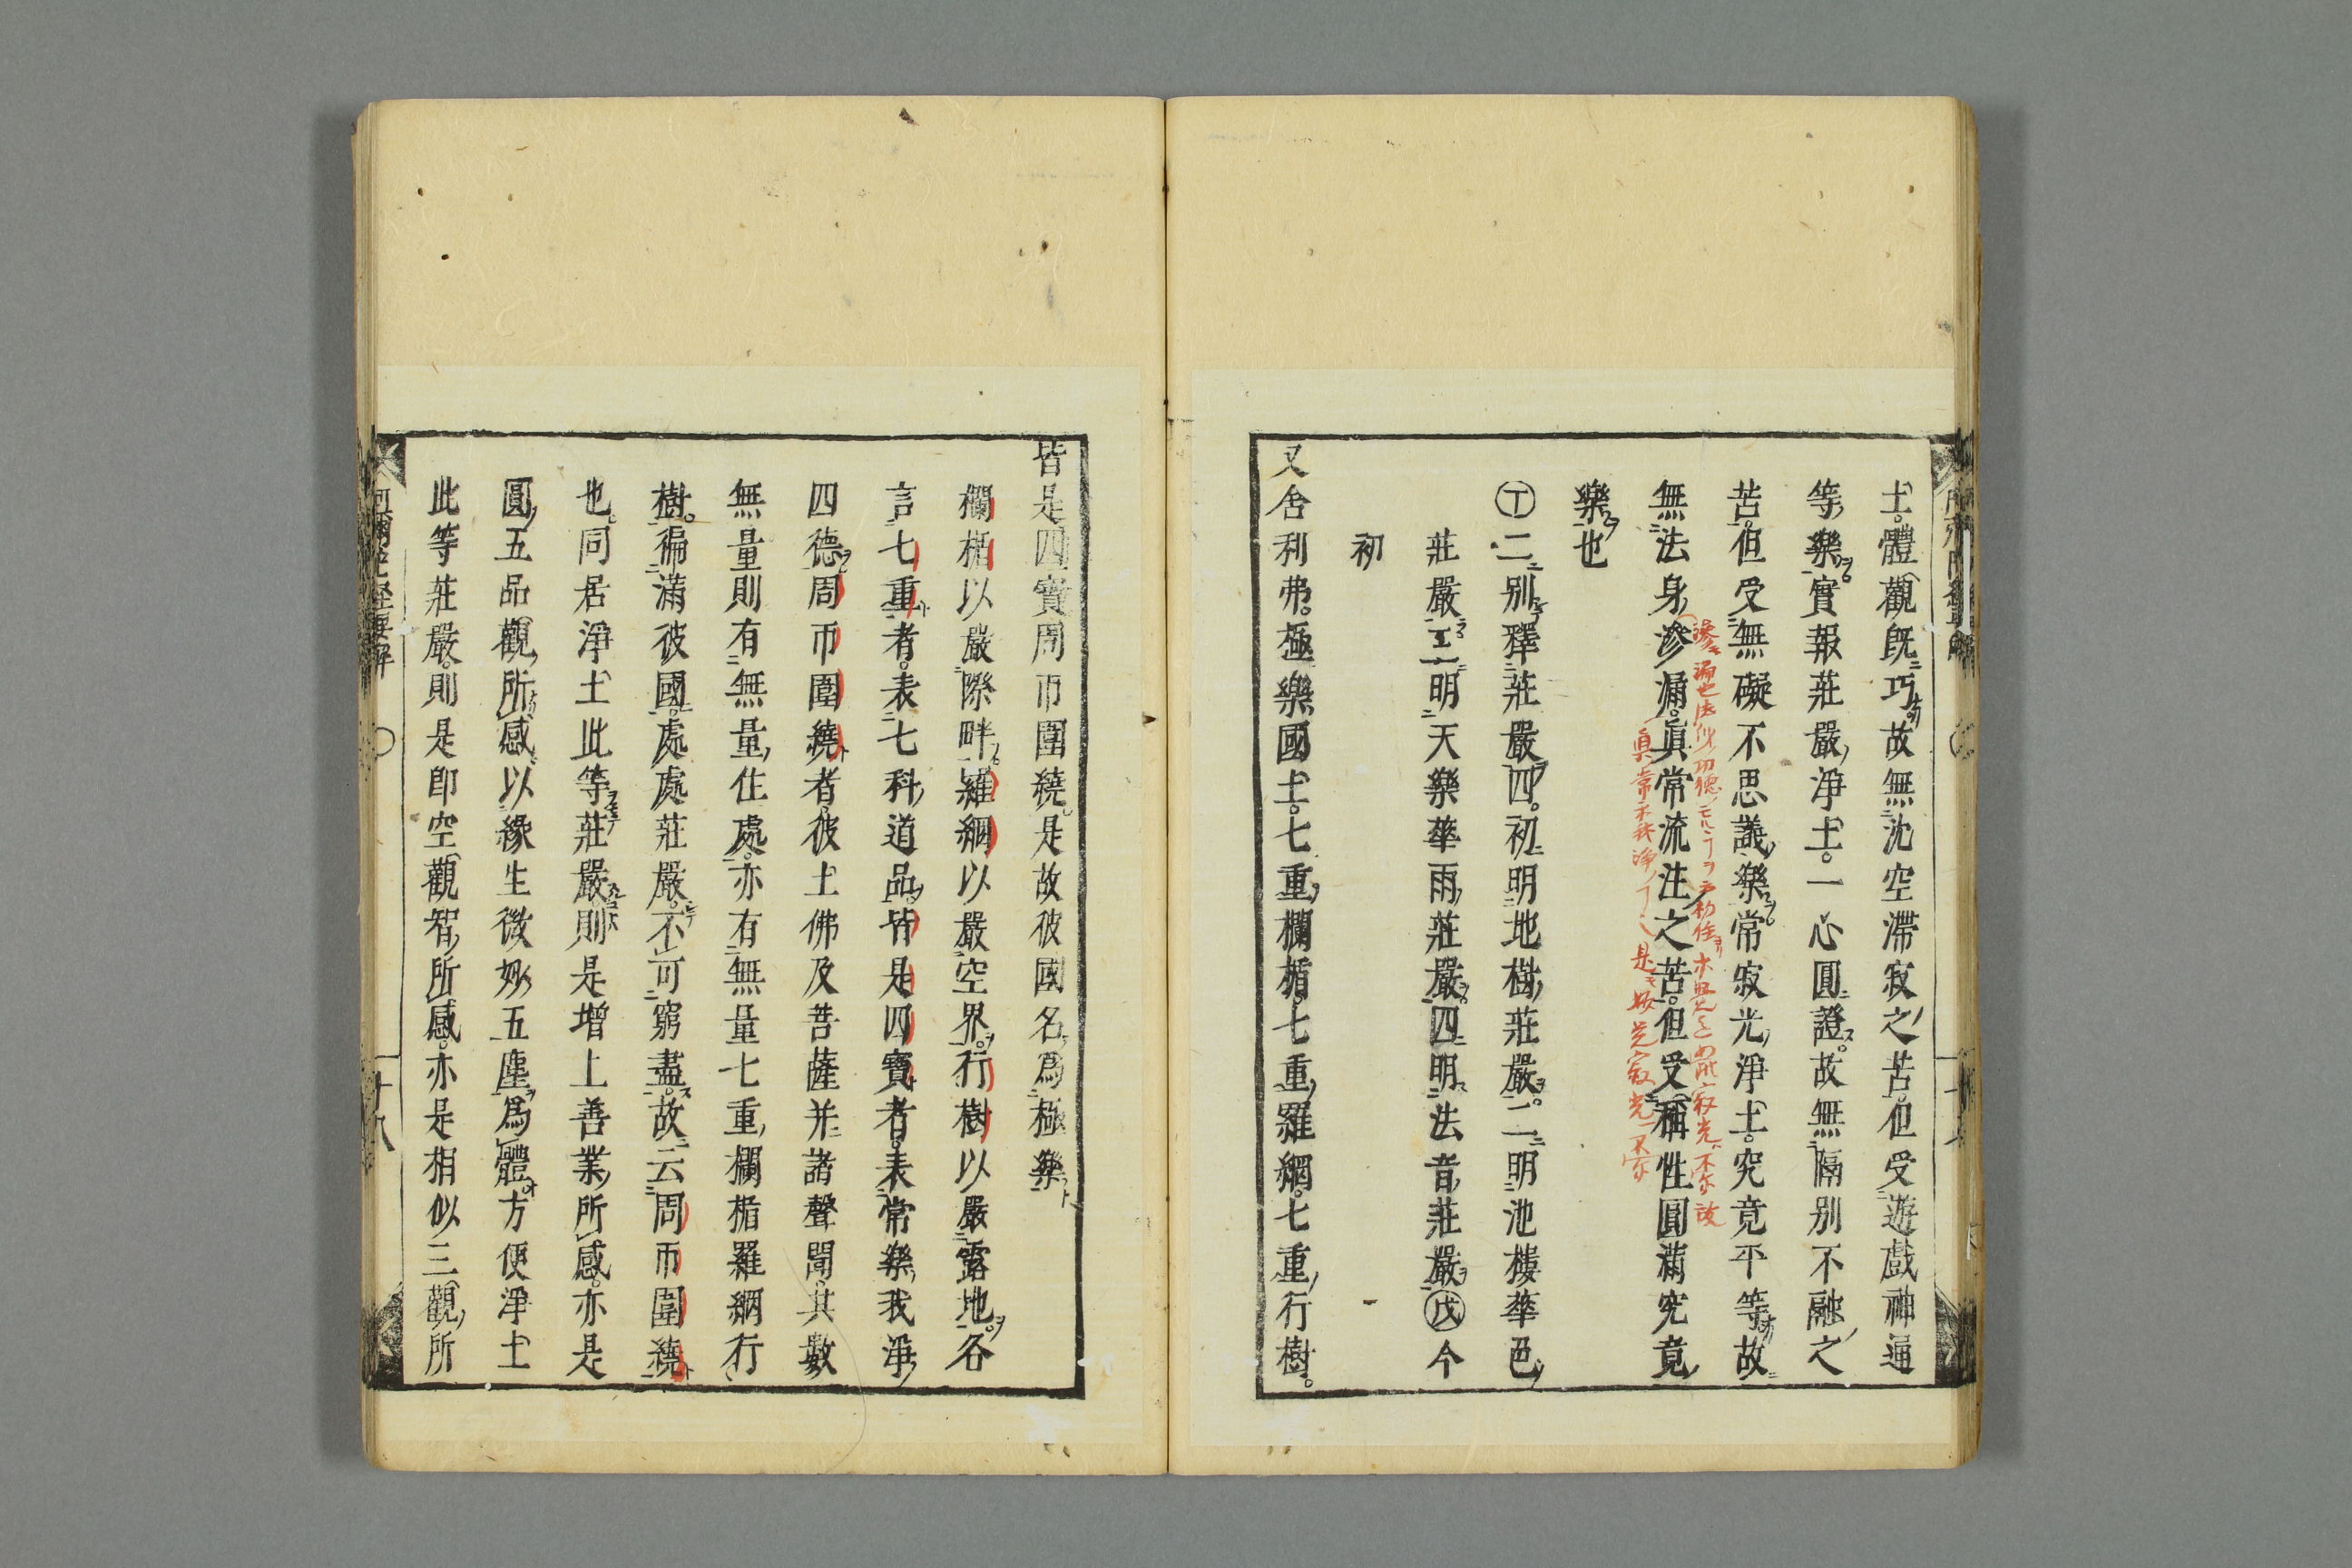 土。體觀既巧。故無沈空滯寂之苦。但受遊戲神通
等樂。實報莊嚴淨土。一心圓證。故無隔別不融之
苦。但受無礙不思議樂。常寂光淨土。究竟平等。故
無法身滲漏。眞常流注之苦。但受稱性圓滿究竟
樂也
丁二別釋莊嚴四。初明地樹莊嚴。二明池樓華色
莊嚴。三明天樂華雨莊嚴。四明法音莊嚴戊今
初
又舍利弗。極樂國土。七重欄楯。七重羅網。七重行樹。
皆是四寶周帀圍繞。是故彼國名爲極樂
欄楯以嚴際畔。羅網以嚴空界。行樹以嚴露地。各
言七重者。表七科道品。皆是四寶者。表常樂我淨
四德。周帀圍繞者。彼土佛及菩薩并諸聲聞。其數
無量則有無量住處。亦有無量七重欄楯羅網行
樹。徧滿彼國。處處莊嚴。不可窮盡。故云周帀圍繞
也。同居淨土此等莊嚴。則是增上善業所感。亦是
圓五品觀所感。以緣生微妙五塵爲體。方便淨土
此等莊嚴。則是卽空觀智所感。亦是相似三觀所
阿彌陀經要解 〇 十八